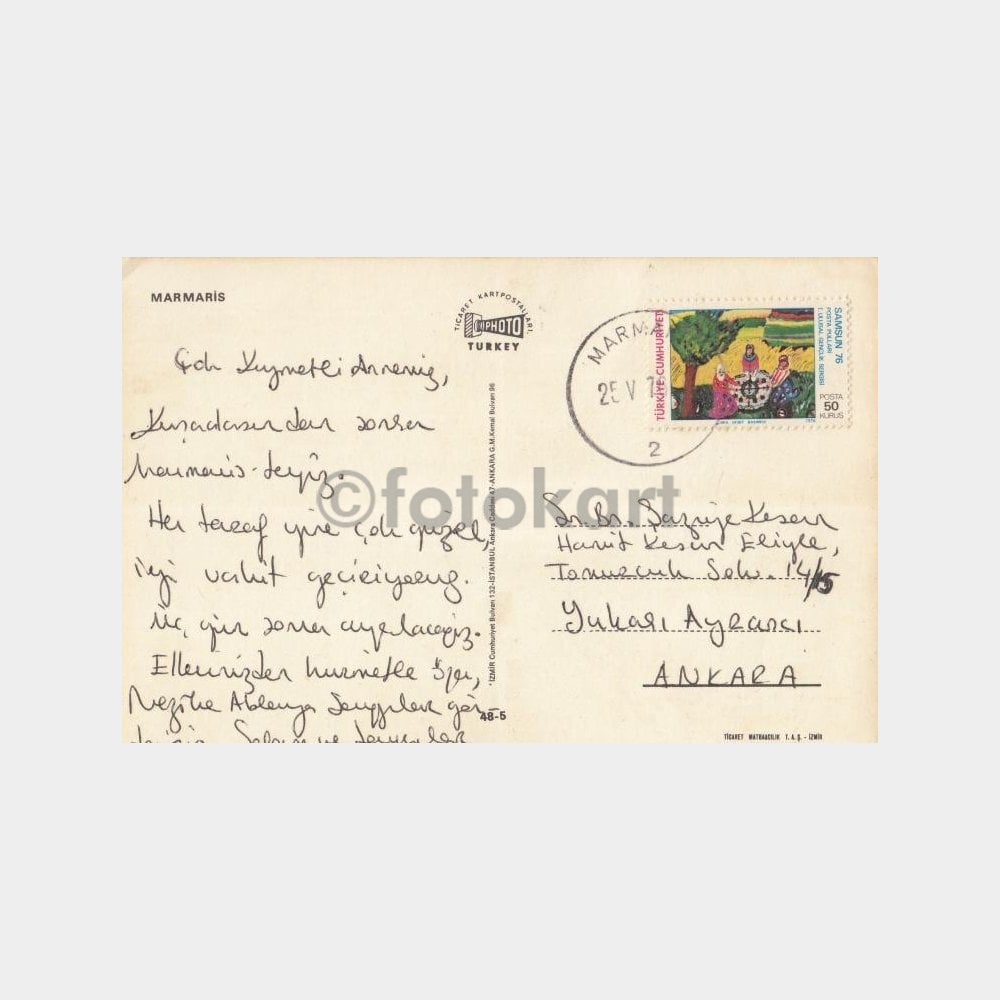 MARMARİS
TİCARET KARTPOSTALLARI
PHOTO
TURKEY
Çok Kıymetli Annemiz,
Kuşadasından sonra
Marmaris-teyiz.
Her taraf yine çok güzel,
iyi vakit geçiriyoruz.
Üç gün sonra ayrılacağız.
Ellerinizden hürmetle öper,
Nezihe Ablanya Sevgiler gön-
Selam ve
48-5
İZMİR Cumhuriyet Bulvarı 132-İSTANBUL Ankara Caddesi 47-ANKARA G.M.Kemal Bulvarı 96
MARMA
25 V
2
TÜRKİYE CUMHURİYETİ
SAMSUN 76
POSTA PULLARI
I. ULUSAL GENÇLİK SERGİSİ
POSTA
50
KURUŞ
1976
©fotokart
Sn. Bn. Şaziye Keser
Hamit Keser Eliyle,
Tomurcuk Sok. 14/15
Yukarı Ayrancı
ANKARA
TİCARET MATBAACILIK T.A.Ş. - İZMİR